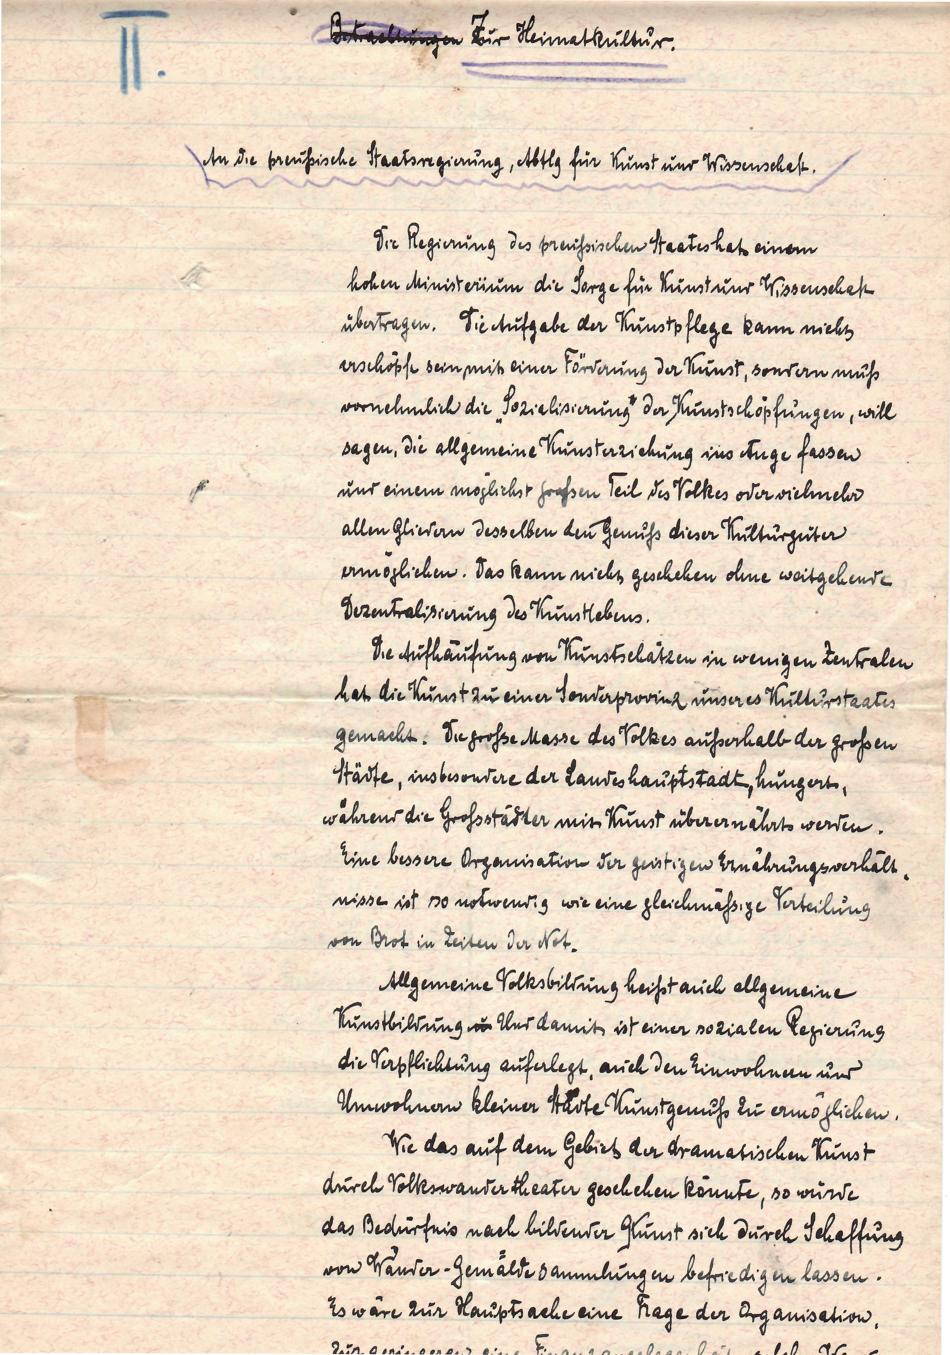 II.
Betrachtungen Zur Heimatkultur.
An die preußische Staatsregierung, Abtlg für Kunst und Wissenschaft.
Die Regierung des preußischen Staates hat einem
hohen Ministerium die Sorge für Kunst und Wissenschaft
übertragen. Die Aufgabe der Kunstpflege kann nicht
erschöpft sein mit einer Förderung der Kunst, sondern muß
vornehmlich die „Sozialisierung" der Kunstschöpfungen, will
sagen, die allgemeine Kunsterziehung ins Auge fassen
und einem möglichst großen Teil des Volkes oder vielmehr
allen Gliedern desselben den Genuß dieser Kulturgüter
ermöglichen. Das kann nicht geschehen ohne weitgehende
Dezentralisierung des Kunstlebens.
Die Aufhäufung von Kunstschätzen in wenigen Zentralen
hat die Kunst zu einer Sonderprovinz unseres Kulturstaates
gemacht. Die große Masse des Volkes außerhalb der großen
Städte, insbesondere der Landeshauptstadt, hungert,
während die Großstädter mit Kunst überernährt werden.
Eine bessere Organisation der geistigen Ernährungsverhält-
nisse ist so notwendig wie eine gleichmäßige Verteilung
von Brot in Zeiten der Not.
Allgemeine Volksbildung heißt auch allgemeine
Kunstbildung Und damit ist einer sozialen Regierung
die Verpflichtung auferlegt, auch den Einwohnern und
Umwohnern kleiner Städte Kunstgenuß zu ermöglichen.
Wie das auf dem Gebiet der dramatischen Kunst
durch Volkswandertheater geschehen könnte, so würde
das Bedürfnis nach bildender Kunst sich durch Schaffung
von Wander-Gemäldesammlungen befriedigen lassen.
Es wäre zur Hauptsache eine Frage der Organisation,
zum geringeren eine